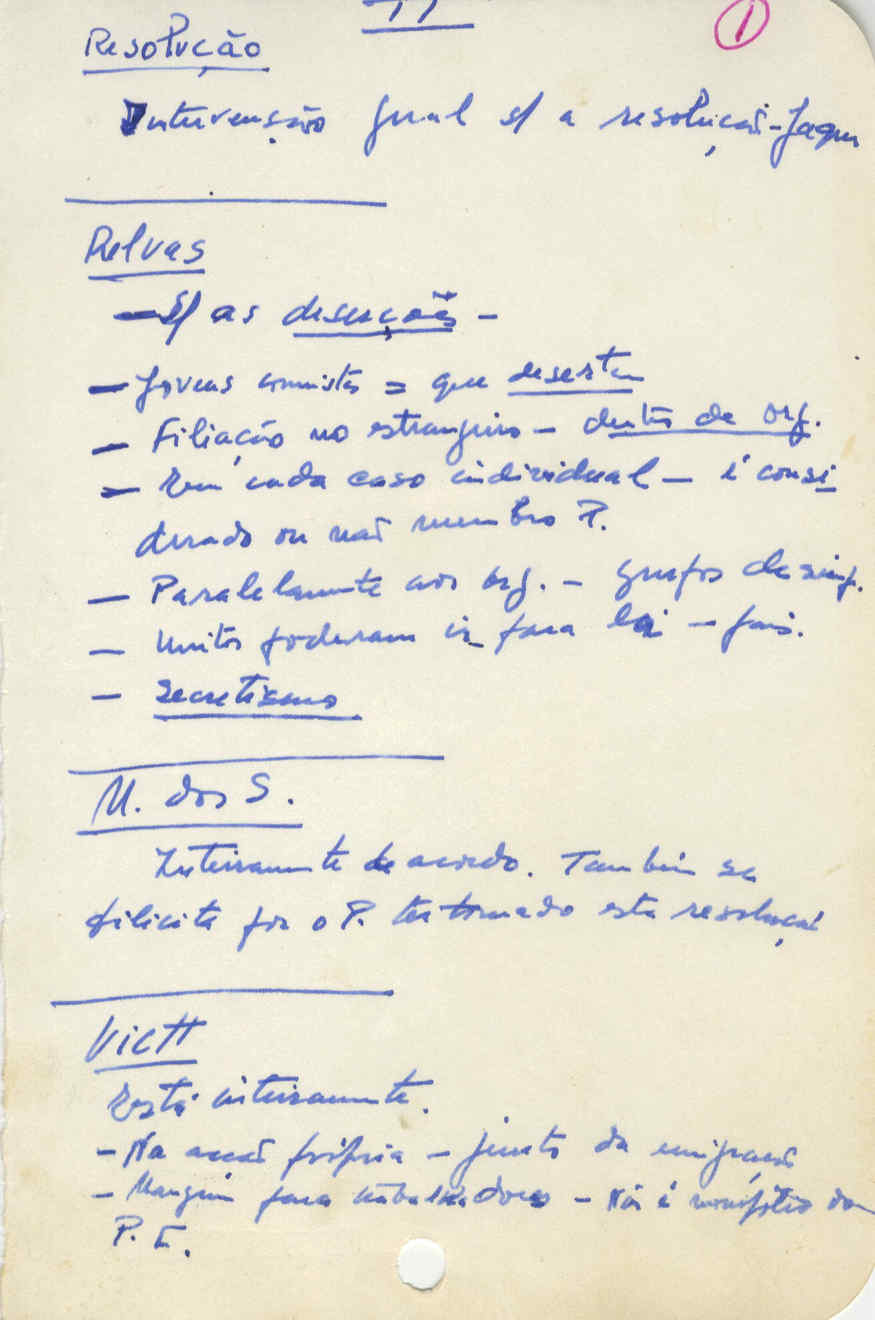 11
1
Resolução
Intervensão geral s/ a resolução - Jaqu
Relvas
- S/ as deserções -
- Jovens comunistas = que desertem
- Filiação no estrangeiro - dentro de org.
- Em cada caso individual - é consi
derado ou não membro P.
- Paralelamente aos org. - grupos de simp.
- Muitos poderam ir para lá - país.
- Secretismo
M. dos S.
Inteiramente de acordo. Também se
felicita por o P. ter tomado esta resolução
Está inteiramente.
- Na acção própria - junto da emigração
- para trabalhadores - Não é monopólio do
P. C.